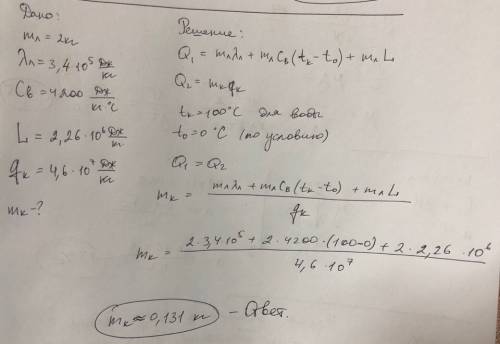 Дано:
mл = 2кг
λл = 3,4·10⁵ Дж/кг
Cв = 4200 Дж/кг°C
L = 2,26·10⁶ Дж/кг
qк = 4,6·10⁷ Дж/кг
mк - ?
Решение:
Q₁ = mлλл + mлCв(tк - t₀) + mлL
Q₂ = mкqк
tк = 100°C для воды
t₀ = 0°C (по условию)
Q₁ = Q₂
mк = (mлλл + mлCв(tк - t₀) + mлL) / qк
mк = (2·3,4·10⁵ + 2·4200·(100-0) + 2·2,26·10⁶) / 4,6·10⁷
mк ≈ 0,131 кг - Ответ.